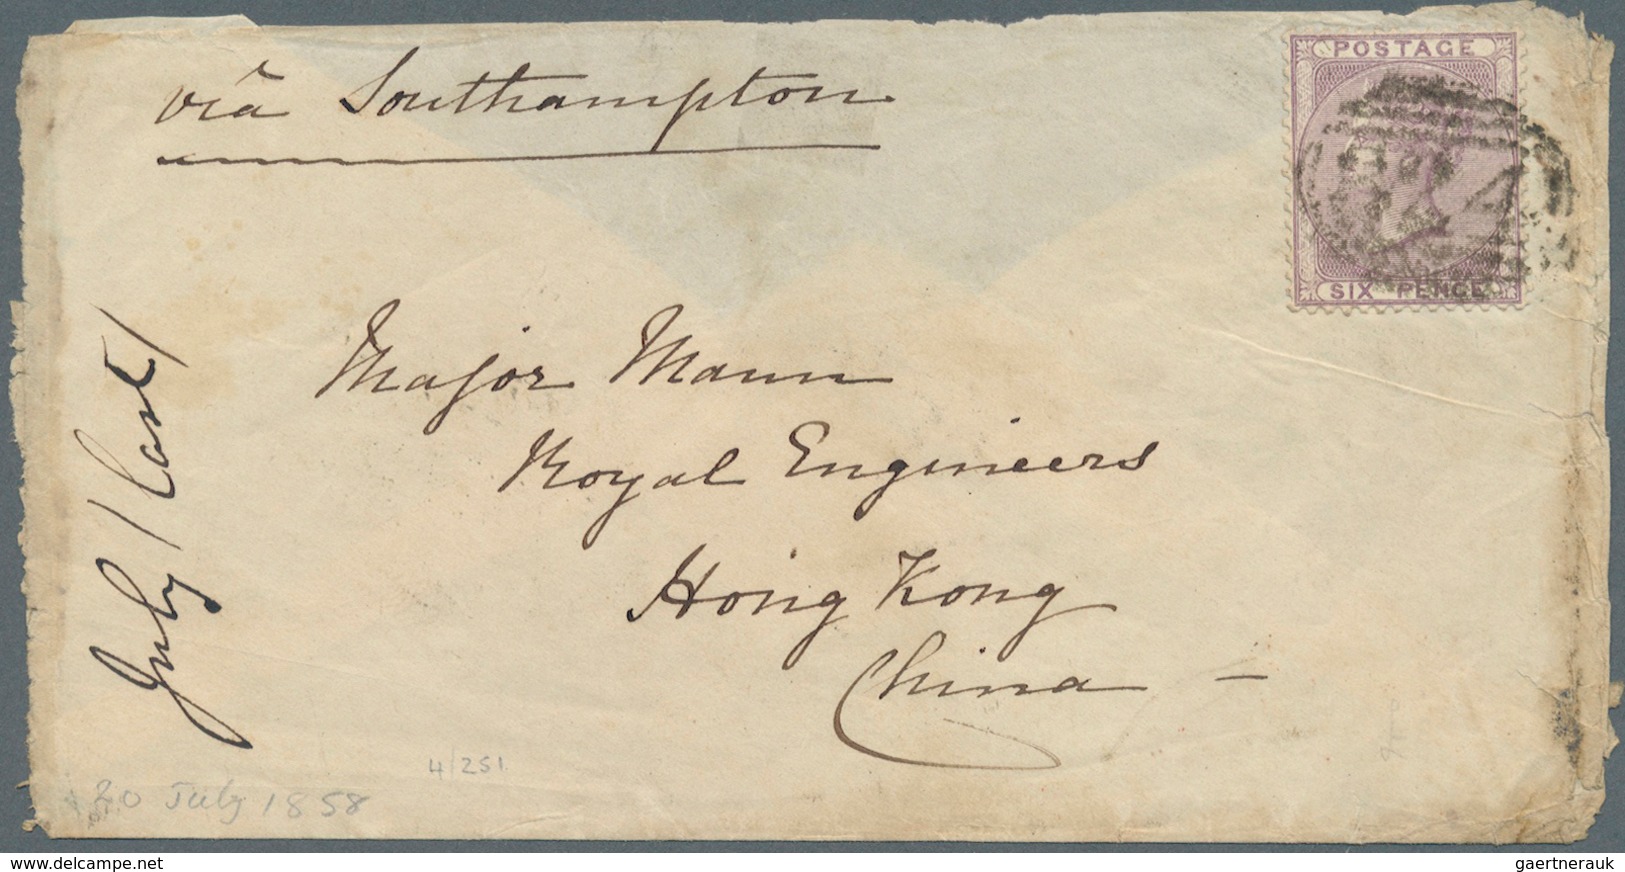 via Southampton
POSTAGE
SIX PENCE
Major Mann
Royal Engineers
Hong Kong
China –
July / last /
4/251
20 July 1858
www.delcampe.net
gaertnerauk